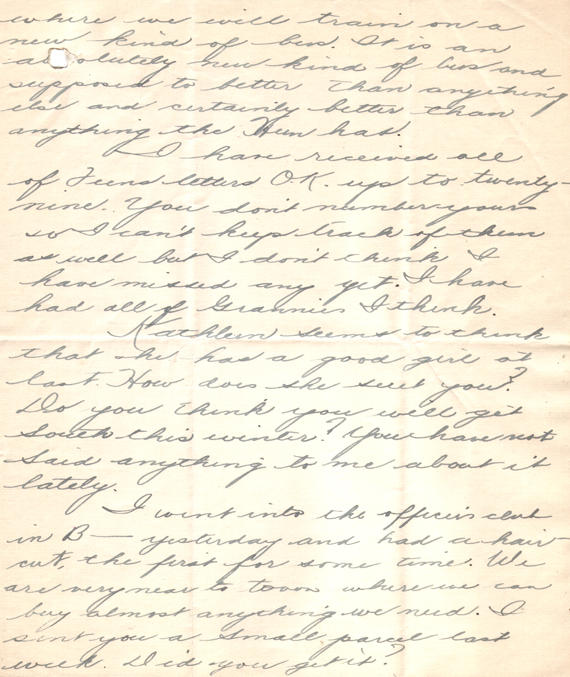 where we will train on a
new kind of bus. It is an
absolutely new kind of bus and
supposed to better than anything
else and certainly better than
anything the Hun has.
I have received all
of Funs letters O.K. up to twenty-
nine. You don't number yours
so I can't keep track of them
as well but I don't think I
have missed any yet. I have
had all of Grannies I think.
Kathleen seems to think
that she has a good girl at
last. How does she suit you?
Do you think you will get
South this winter? You have not
said anything to me about it
lately.
I went into the officers club
in B— yesterday and had a hair-
cut, the first for some time. We
are very near to town where we can
buy almost anything we need. I
sent you a small parcel last
week. Did you get it?